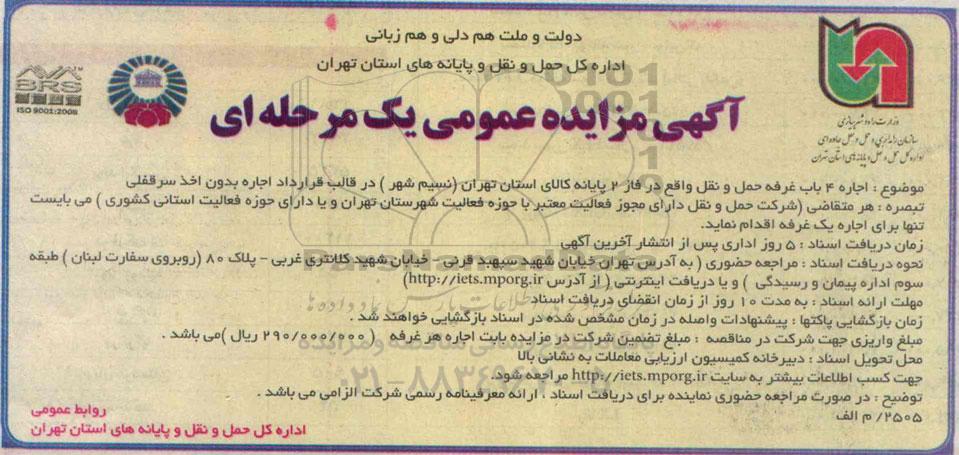 دولت و ملت هم دلی و هم زبانی
اداره کل حمل و نقل و پایانه های استان تهران
آگهی مزایده عمومی یک مرحله ای
BRS
ISO 9001:2008
وزارت راه و شهرسازی
سازمان راهداری و حمل و نقل جاده ای
اداره کل حمل و نقل و پایانه های استان تهران
موضوع : اجاره ۴ باب غرفه حمل و نقل واقع در فاز ۲ پایانه کالای استان تهران (نسیم شهر ) در قالب قرارداد اجاره بدون اخذ سرقفلی
تبصره : هر متقاضی (شرکت حمل و نقل دارای مجوز فعالیت معتبر با حوزه فعالیت شهرستان تهران و یا دارای حوزه فعالیت استانی کشوری ) می بایست
تنها برای اجاره یک غرفه اقدام نماید.
زمان دریافت اسناد : ۵ روز اداری پس از انتشار آخرین آگهی
نحوه دریافت اسناد : مراجعه حضوری ( به آدرس تهران خیابان شهید سپهبد قرنی - خیابان شهید کلانتری غربی - پلاک ۸۰ (روبروی سفارت لبنان ) طبقه
سوم اداره پیمان و رسیدگی ) و یا دریافت اینترنتی ( از آدرس http://iets.mporg.ir)
مهلت ارائه اسناد : به مدت ۱۰ روز از زمان انقضای دریافت اسناد
زمان بازگشایی پاکتها : پیشنهادات واصله در زمان مشخص شده در اسناد بازگشایی خواهند شد .
مبلغ واریزی جهت شرکت در مناقصه : مبلغ تضمین شرکت در مزایده بابت اجاره هر غرفه ( ۲۹۰/۰۰۰/۰۰۰ ریال )می باشد .
محل تحویل اسناد : دبیرخانه کمیسیون ارزیابی معاملات به نشانی بالا
جهت کسب اطلاعات بیشتر به سایت http://iets.mporg.ir مراجعه شود.
توضیح : در صورت مراجعه حضوری نماینده برای دریافت اسناد ، ارائه معرفینامه رسمی شرکت الزامی می باشد .
۲۵۰۵/ م الف
روابط عمومی
اداره کل حمل و نقل و پایانه های استان تهران
۰۲۱-۸۸۳۴۹۶۷۰-۵